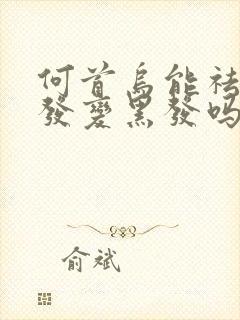 何首烏能祛
發變黑發吗
俞斌